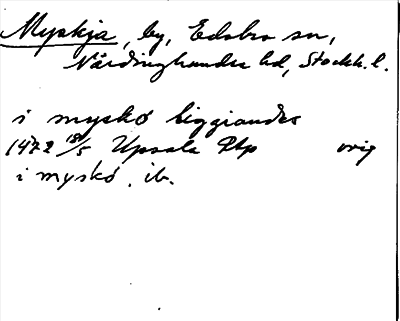 Myskja, by, Edsbro sn,
Närdinghundra hd, Stockh. l.
i myskø liggiandes
1472 18/5 Upsala Ptp orig
i myskø. ib.